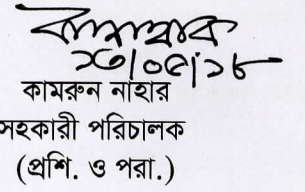 ২৩|০৫|১৮
কামরুন নাহার
সহকারী পরিচালক
(প্রশি. ও পরা.)